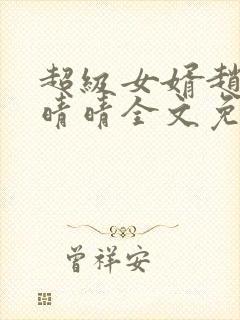 超级女婿趙
晴晴全文免
曾祥安